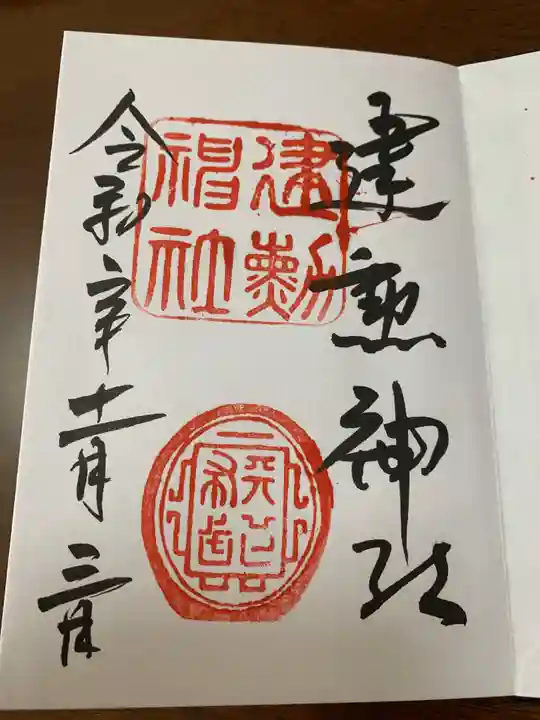 建勲神社
建勲
神社
天下布武
令和 年十一月三日